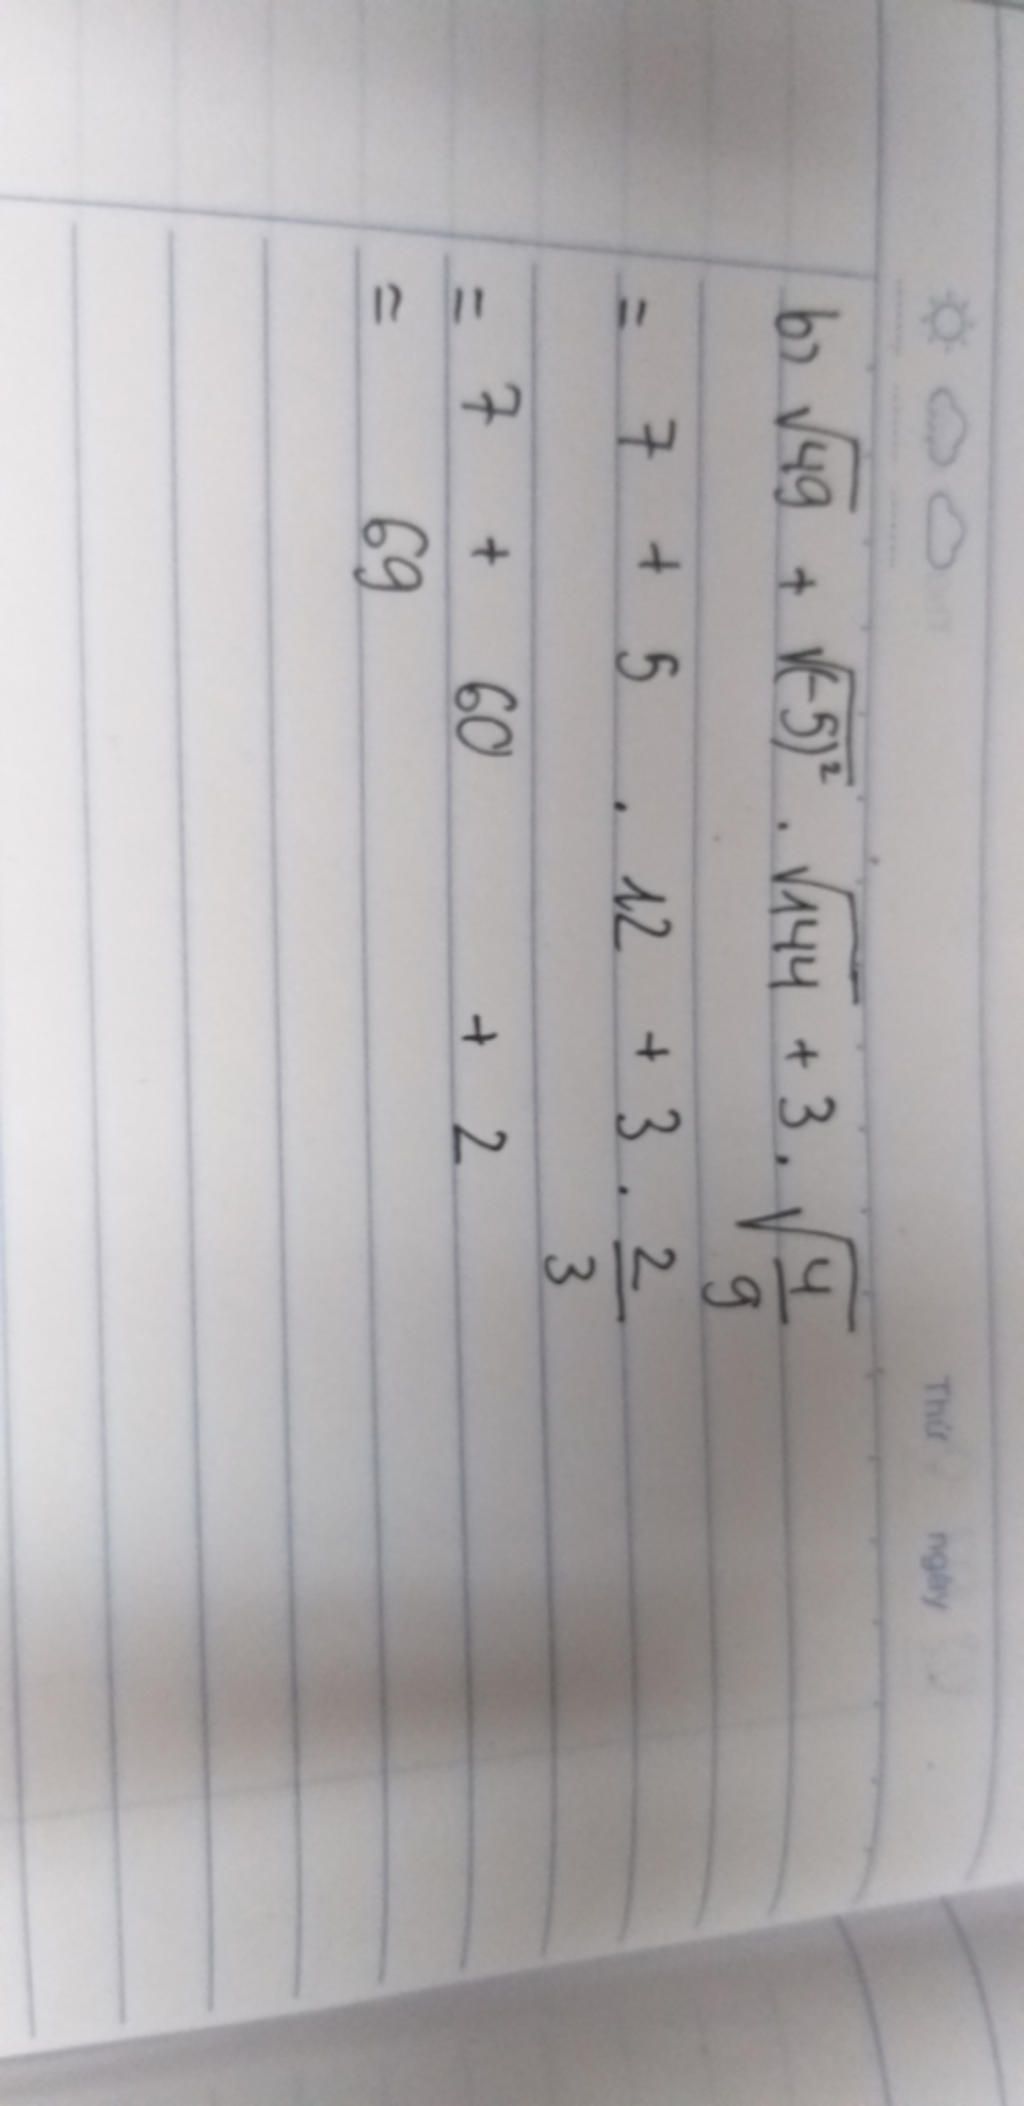 Thứ ngày
b) √49 + √(-5)² . √144 + 3 . √(4/9)
= 7 + 5 . 12 + 3 . 2/3
= 7 + 60 + 2
= 69